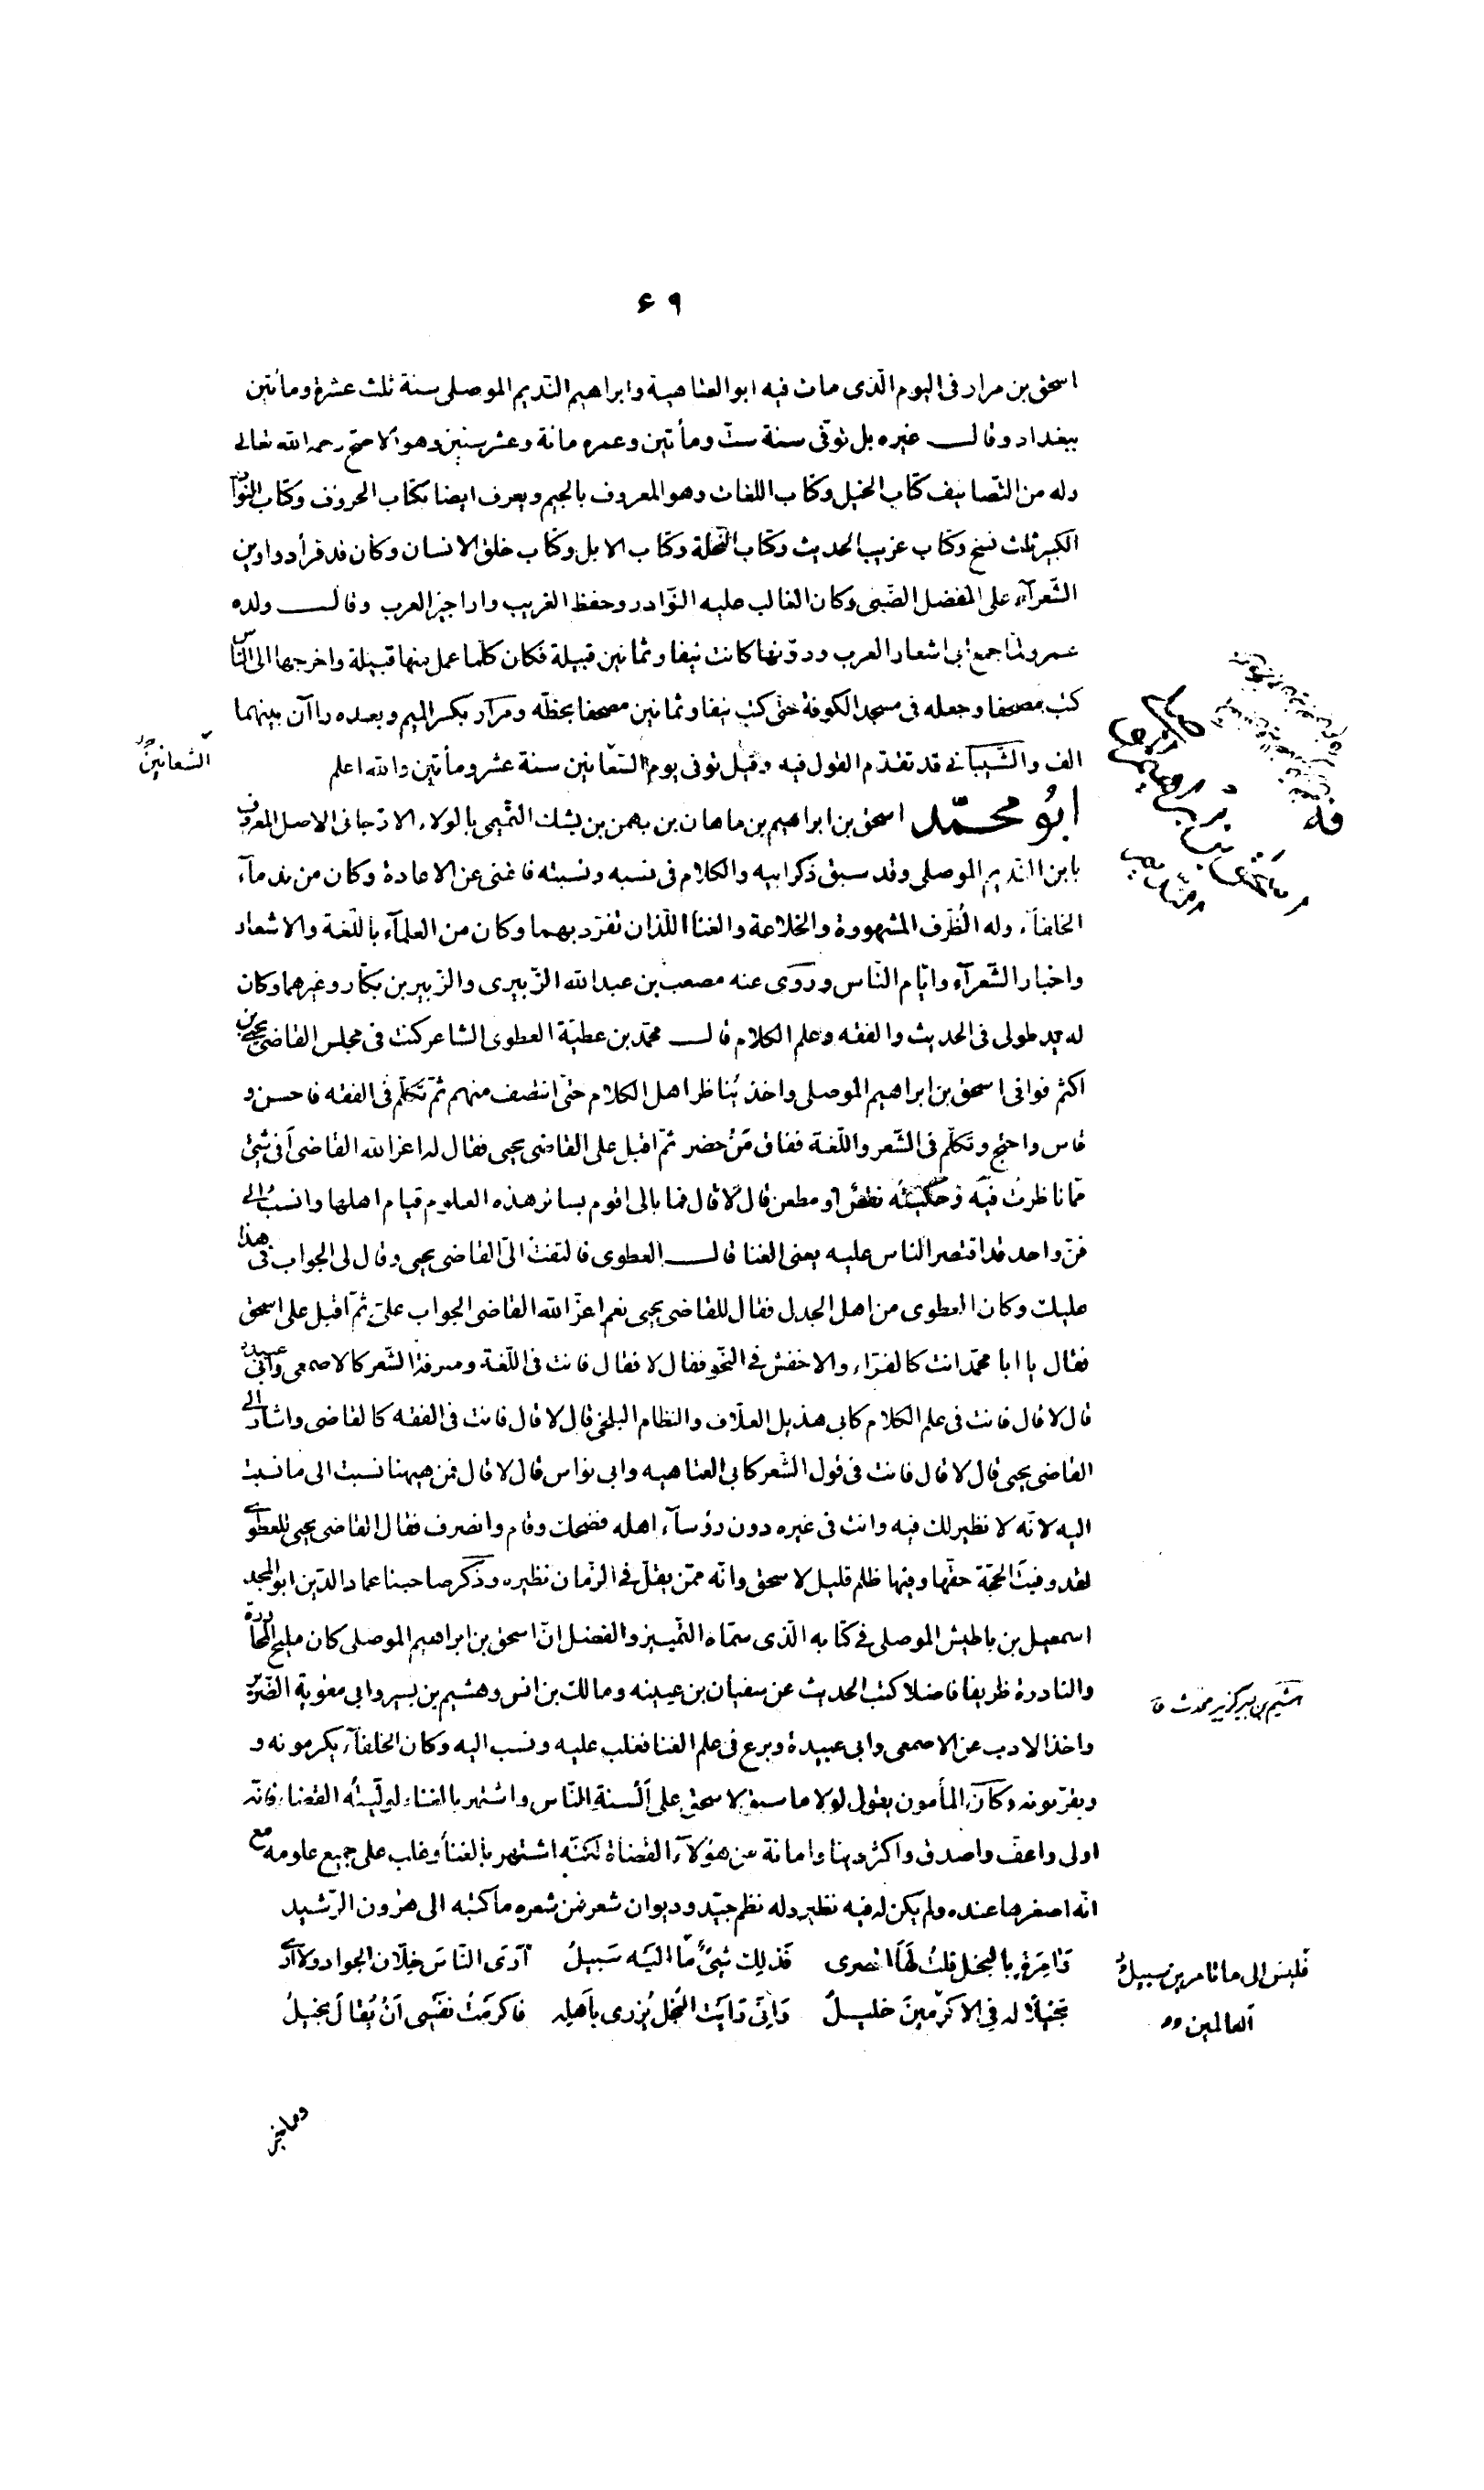 ٦٩
اسحق بن مرار فى اليوم الّذى مات فيه ابو العتاهية وابراهيم النّديم الموصلى سنة ثلث عشرة ومأتين
ببغداد وقال غيره بل توفّى سنة ستّ ومأتين وعمره مائة وعشر سنين وهو الاصحّ رحمه الله تعالى
وله من التّصانيف كتاب الخيل وكتاب اللغات وهو المعروف بالجيم ويعرف ايضا بكتاب الحروف وكتاب النّوادر
الكبير ثلث نسخ وكتاب غريب الحديث وكتاب النّحلة وكتاب الابل وكتاب خلق الانسان وكان قد قرأ دواوين
الشّعرآء على المفضل الضّبى وكان الغالب عليه النّوادر وحفظ الغريب واراجيز العرب وقال ولده
عمرو لمّا جمع ابى اشعار العرب ودوّنها كانت نيفا وثمانين قبيلة فكان كلّما عمل منها قبيلة واخرجها الى النّاس
كتب مصحفا وجعله فى مسجد الكوفة حتى كتب نيفا وثمانين مصحفا بخطّه ومرار بكسر الميم وبعده راآن بينهما
الف والشّيبانى قد تقدّم القول فيه وقيل توفى يوم السّعانين سنة عشر ومأتين والله اعلم
السّعانين
ابُو محمّد اسحق بن ابراهيم بن ماهان بن بهمن بن نسك التّميمى بالولاء الارّجانى الاصل المعروف
بابن النّديم الموصلى وقد سبق ذكر ابيه والكلام فى نسبه ونسبته فاغنى عن الاعادة وكان من ندمآء
الخلفآء وله الظّرف المشهوودة والخلاعة والغنا اللّذان تفرّد بهما وكان من العلمآء باللّغة والاشعار
واخبار الشّعرآء وايّام النّاس وروى عنه مصعب بن عبد الله الزّبيرى والزّبير بن بكّار وغيرهما وكان
له يد طولى فى الحديث والفقه وعلم الكلام قال محمّد بن عطيّة العطوى الشاعر كنت فى مجلس القاضى يحيى بن
اكثم فوافى اسحق بن ابراهيم الموصلى واخذ يُناظر اهل الكلام حتّى انتصف منهم ثمّ تكلّم فى الفقه فاحسن و
قاس واحتجّ وتكلّم فى الشّعر واللّغة ففاق مَنْ حضر ثمّ اقبل على القاضى يحيى فقال له اعز الله القاضى أفى شئ
ممّا ناظرتُ فيه وحكيتُه نقصٌ او مطعن قال لا قال فما بالى اقوم بسائر هذه العلوم قيام اهلها وانسبُ الى
فنّ واحد قد اقتصر الناس عليه يعنى الغنا قال العطوى فالتفت الىّ القاضى يحيى وقال لى الجواب فى هذا
عليك وكان العطوى من اهل الجدل فقال للقاضى يحيى نعم اعزّ الله القاضى الجواب علىّ ثمّ اقبل على اسحق
فقال يا ابا محمّد انت كالفرّاء والاخفش فى النّحو فقال لا فقال فانت فى اللّغة ومعرفة الشّعر كالاصمعى وابى عبيدة
قال لا قال فانت فى علم الكلام كابى هذيل العلّاف والنظام البلخى قال لا قال فانت فى الفقه كالقاضى واشار الى
القاضى يحيى قال لا قال فانت فى قول الشّعر كابى العتاهيه وابى نواس قال لا قال فمن هيهنا نسبت الى ما نسبت
اليه لانّه لا نظير لك فيه وانت فى غيره دون رؤسآء اهله فضحك وقام وانصرف فقال القاضى يحيى للعطوى
لقد وفيتَ الحجّة حقّها وفيها ظلم قليل لاسحق وانّه ممّن يقلّ فى الزّمان نظيره وذكر صاحبنا عماد الدّين ابو المجد
اسمعيل بن باطيش الموصلى فى كتابه الّذى سمّاه التّمييز والفصل انّ اسحق بن ابراهيم الموصلى كان مليح المحاورة
والنادرة ظريفا فاضلا كتب الحديث عن سفيان بن عيينه ومالك بن انس وهشيم بن بشير وابى معوية الضّرير
واخذ الادب عن الاصمعى وابى عبيدة وبرع فى علم الغنا فغلب عليه ونسب اليه وكان الخلفآء يكرمونه و
ويقرّبونه وكان المأمون يقول لولا ما سبق لاسحق على ألسنة النّاس واشتهر بالغناء لولّيتُه القضاء فانّه
اولى واعفّ واصدق واكثر دينا وامانة من هؤلآء القضاة لكنّه اشتهر بالغنآ وغلب على جميع علومه مع
انّه اصغرها عنده ولم يكن له فيه نظير وله نظم جيّد وديوان شعر فمن شعره ما كتبه الى هرون الرّشيد
وَآمِرَةٍ بالبخل قلتُ لَهَا اقصرى فَذلِك شَئٌ مّا اليَه سَبيلُ اَرَى النّاسَ خِلّان الجواد ولا ارى
بَخيلًا له فِى الاكرَمينَ خليلُ وَاِنّى رَايَت البُخل يُزرى بِاَهلِه فاكرَمتُ نفسَى اَنْ يُقالَ بخيلُ
فَليسَ الى ما تامرين سبيلُ
العالمين